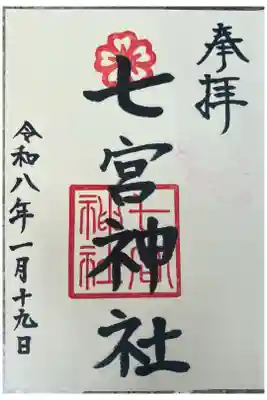 奉拝
七宮神社
七宮
神社
令和八年一月十九日